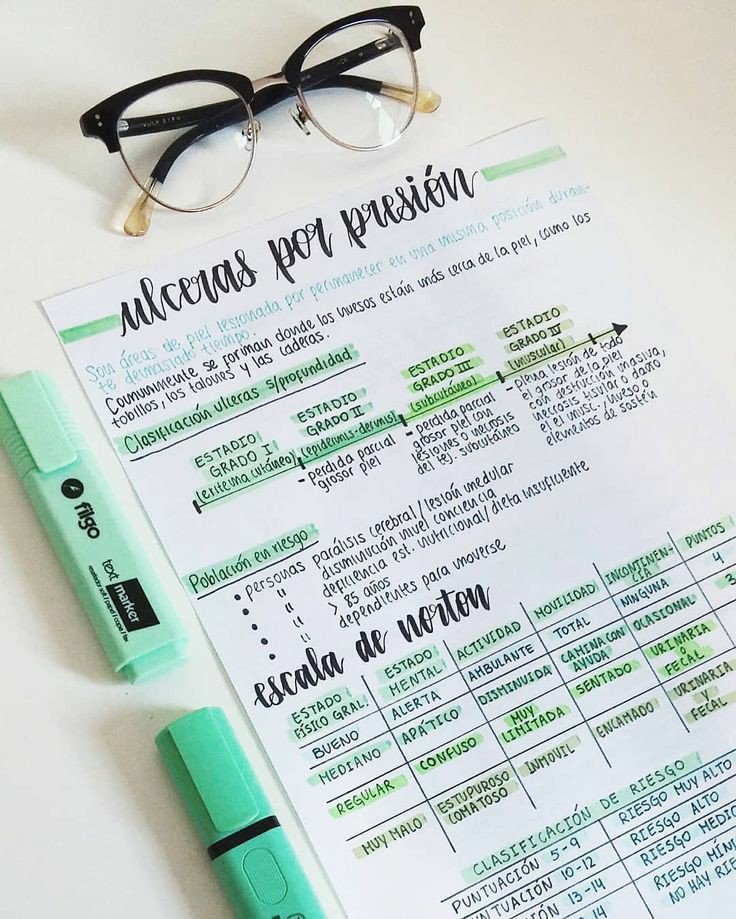 ulceras por presión
Son áreas de piel lesionada por permanecer en una misma posición duran-
te demasiado tiempo.
Comunmente se forman donde los huesos están más cerca de la piel, como los
tobillos, los talones y las caderas.
Clasificación ulceras s/profundidad
ESTADIO
GRADO I
(eritema cutáneo)
ESTADIO
GRADO II
(epidermis-dermis)
- perdida parcial
grosor piel
ESTADIO
GRADO III
(subcutáneo)
- perdida parcial
grosor piel con
lesiones o necrosis
del tej. subcutáneo
ESTADIO
GRADO IV
(muscular)
- plena lesión de todo
el grosor de la piel
con destrucción masiva,
necrosis tisular o daño,
el el musc. hueso o
elementos de sostén
Población en riesgo
• personas parálisis cerebral/lesión medular
• " disminución nivel conciencia
• " deficiencia est. nutricional/dieta insuficiente
• " > 85 años
• dependientes para moverse
escala de norton
ESTADO FÍSICO GRAL. ESTADO MENTAL ACTIVIDAD MOVILIDAD INCONTINEN-CIA PUNTOS
BUENO ALERTA AMBULANTE TOTAL NINGUNA 4
MEDIANO APÁTICO DISMINUIDA CAMINA CON AYUDA OCASIONAL 3
REGULAR CONFUSO MUY LIMITADA SENTADO URINARIA O FECAL
MUY MALO ESTUPUROSO COMATOSO INMOVIL ENCAMADO URINARIA Y FECAL
CLASIFICACIÓN DE RIESGO
PUNTUACIÓN 5-9 RIESGO MUY ALTO
PUNTUACIÓN 10-12 RIESGO ALTO
PUNTUACIÓN 13-14 RIESGO MEDIO
RIESGO MÍN
NO HAY RIE
filgo
text
marker